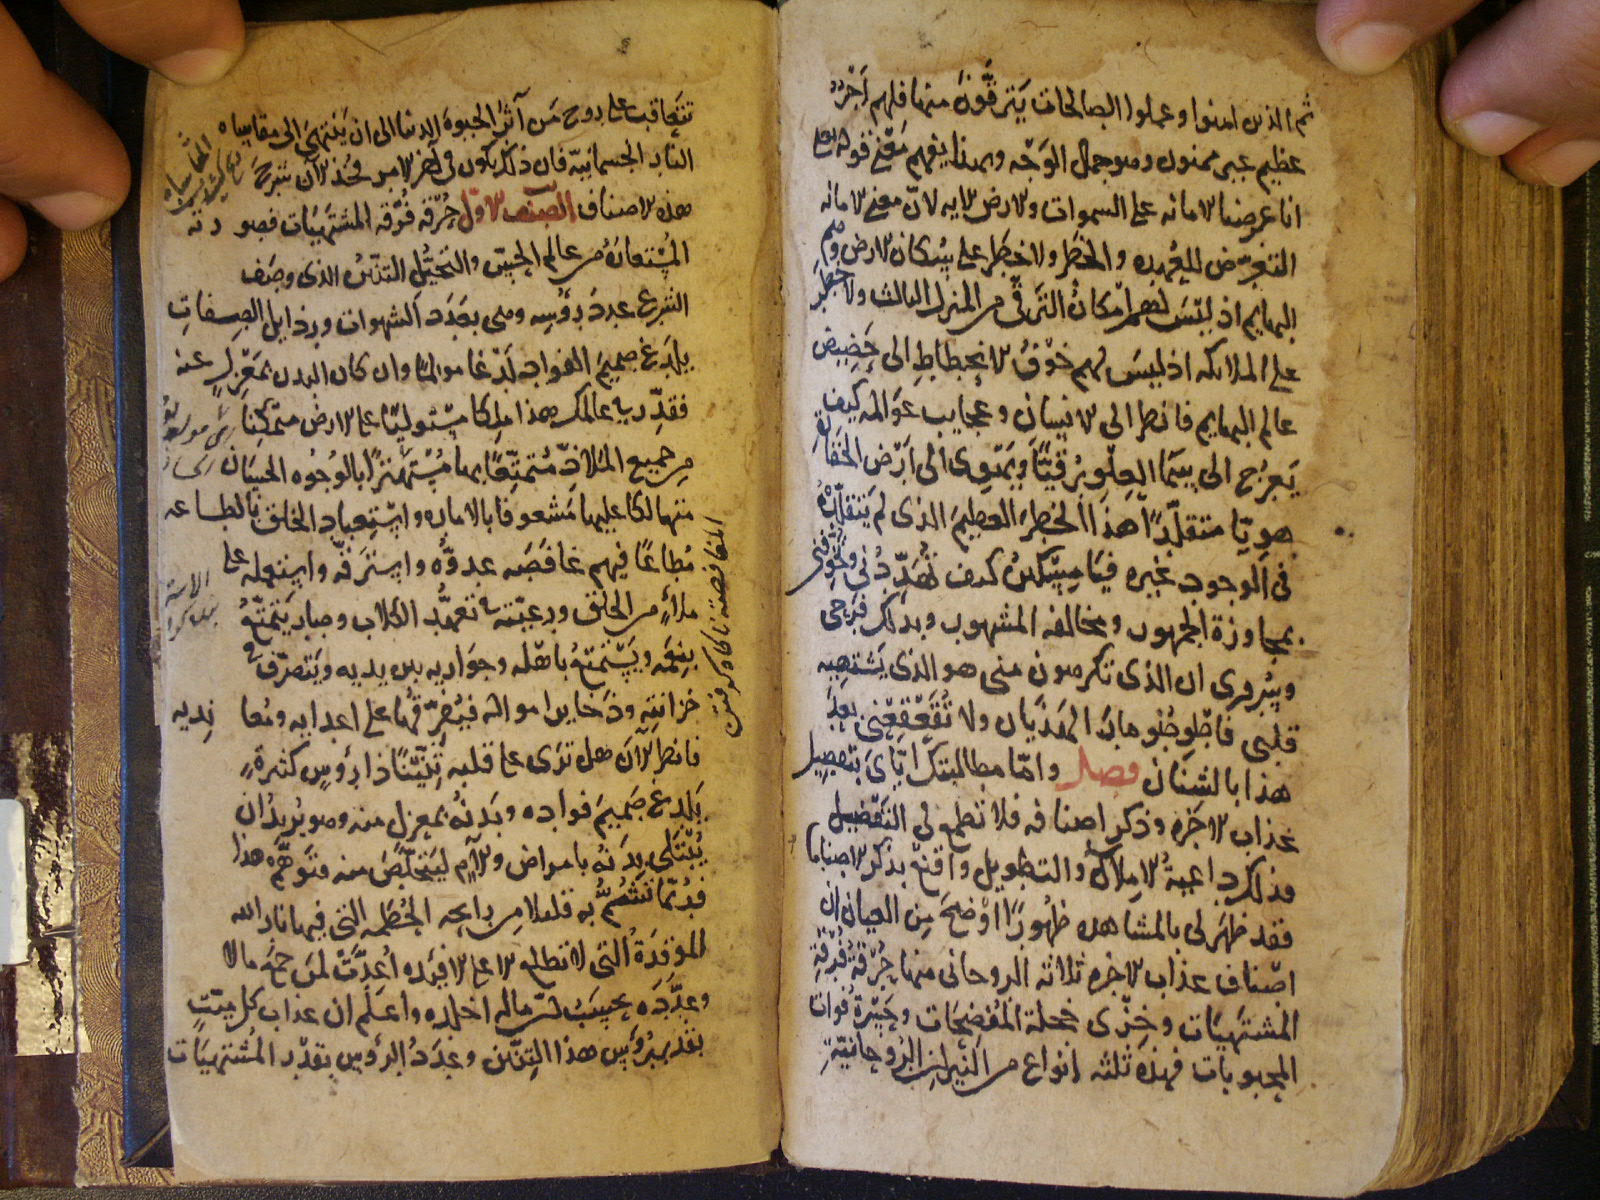 ثم الذين امنوا وعملوا الصالحات يترقون منها فلهم اجر
عظيم غير ممنون وهو جمال الوجه وبهذا يفهم معنى قوله تعلى
انا عرضنا الامانه على السموات والارض الايه لان معنى الامانه
التعرض للعهده والخطر ولا خطر على سكان الارض وهم
البهايم اذ ليس لهم امكان الترقى من المنزل الثالث ولا خطر
على الملائكه اذ ليس لهم خوف الانحطاط الى حضيض
عالم البهايم فانظر الى الانسان وعجايب عوالمه كيف
يعرج الى سما العلو رقيا ويهوى الى ارض الخفاره
هويا متقلدا هذا الخطر العظيم الذى لم يتقلده
فى الوجود غيره فيا مسكين كيف تهددنى وتخوفنى
بمجاوزة الجمهور ومخالفه المشهور وبذلك فرحى
وسرورى ان الذى تكرهون منى هو الذى يشتهيه
قلبى فاطو طومار الهذيان ولا تقعقعنى بعد
هذا بالشنان فصل واما مطالبتك اياى بتفصيل
عذاب الاخره وذكر اصنافه فلا تطمع فى التفصيل
فذلك داعية الاملال والتطويل واقنع بذكر الاصناف
فقد ظهر لى بالمشاهده ظهورا اوضح من العيان ان
اصناف عذاب الاخره ثلاثه الروحانى منها حرقة فرقة
المشتهيات وخزى خجلة المفضحات وحسرة فوات
المحبوبات فهذه ثلثه انواع من النيران الروحانية
تتعاقب على روح من آثر الحيوة الدنيا الى ان ينتهى الى مقاساه
النار الجسمانيه فان ذلك يكون فى آخر الامر فخذ الآن شرح
هذه الاصناف الصنف الاول حرقة فرقه المشتهيات فصورته
المستعاره من عالم الحس والتخيل التنين الذى وصف
الشرع عدد رؤسه وهى بعدد الشهوات ورذايل الصفات
يلدغ صميم الفواد لدغا مولما وان كان البدن بمعزل عنه
فقدر فى عالمك هذا ملكا مستوليا على الارض متمكنا
من جميع الملاذ متمتعا بها مستهترا بالوجوه الحسان
متهالكا عليها مشعوفا بالاماره واستعباد الخلق بالطاعه
مطاعا فيهم غافصه عدوه واسترقه واستعمله على
ملاء من الخلق ورعيته فى تعهد الكلاب وصار يتمتع
بنعمه ويستمتع باهله وجواريه بين يديه ويتصرف فى
خزانته وذخاير امواله فيفرقها على اعدايه ومعانديه
فانظر الآن هل ترى على قلبه تنينا ذا رؤس كثيرة
يلدغ صميم فواده وبدنه بمعزل منه وهو يريد ان
يبتلى بدنه بامراض والآم ليتخلص منه فتوهم هذا
فربما تشم به قليلا من رايحه الحطمه التى فيها نار الله
الموقدة التى لا تطلع الا على الافيده اعدت لمن جمع مالا
وعدده يحسب ان ماله اخلده واعلم ان عذاب كل ميت
بقدر رؤس هذا التنين وعدد الرؤس بقدر المشتهيات